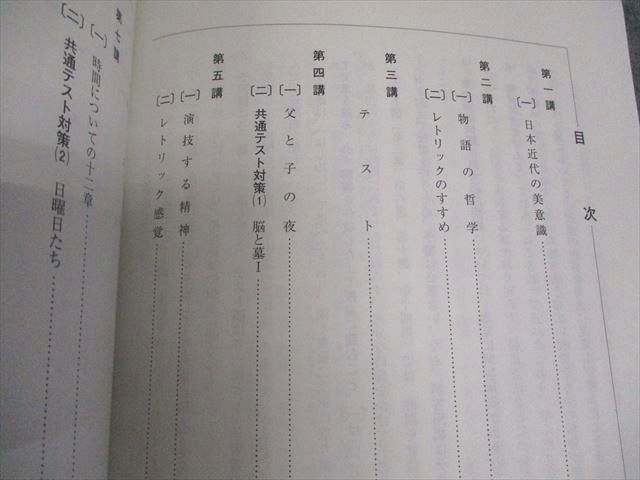 目次
第一講
〔一〕 日本近代の美意識
第二講
〔一〕 物語の哲学
〔二〕 レトリックのすすめ
第三講
テスト
第四講
〔一〕 父と子の夜
〔二〕 共通テスト対策(1) 脳と墓Ⅰ
第五講
〔一〕 演技する精神
〔二〕 レトリック感覚
第七講
〔一〕 時間についての十二章
〔二〕 共通テスト対策(2) 日曜日たち